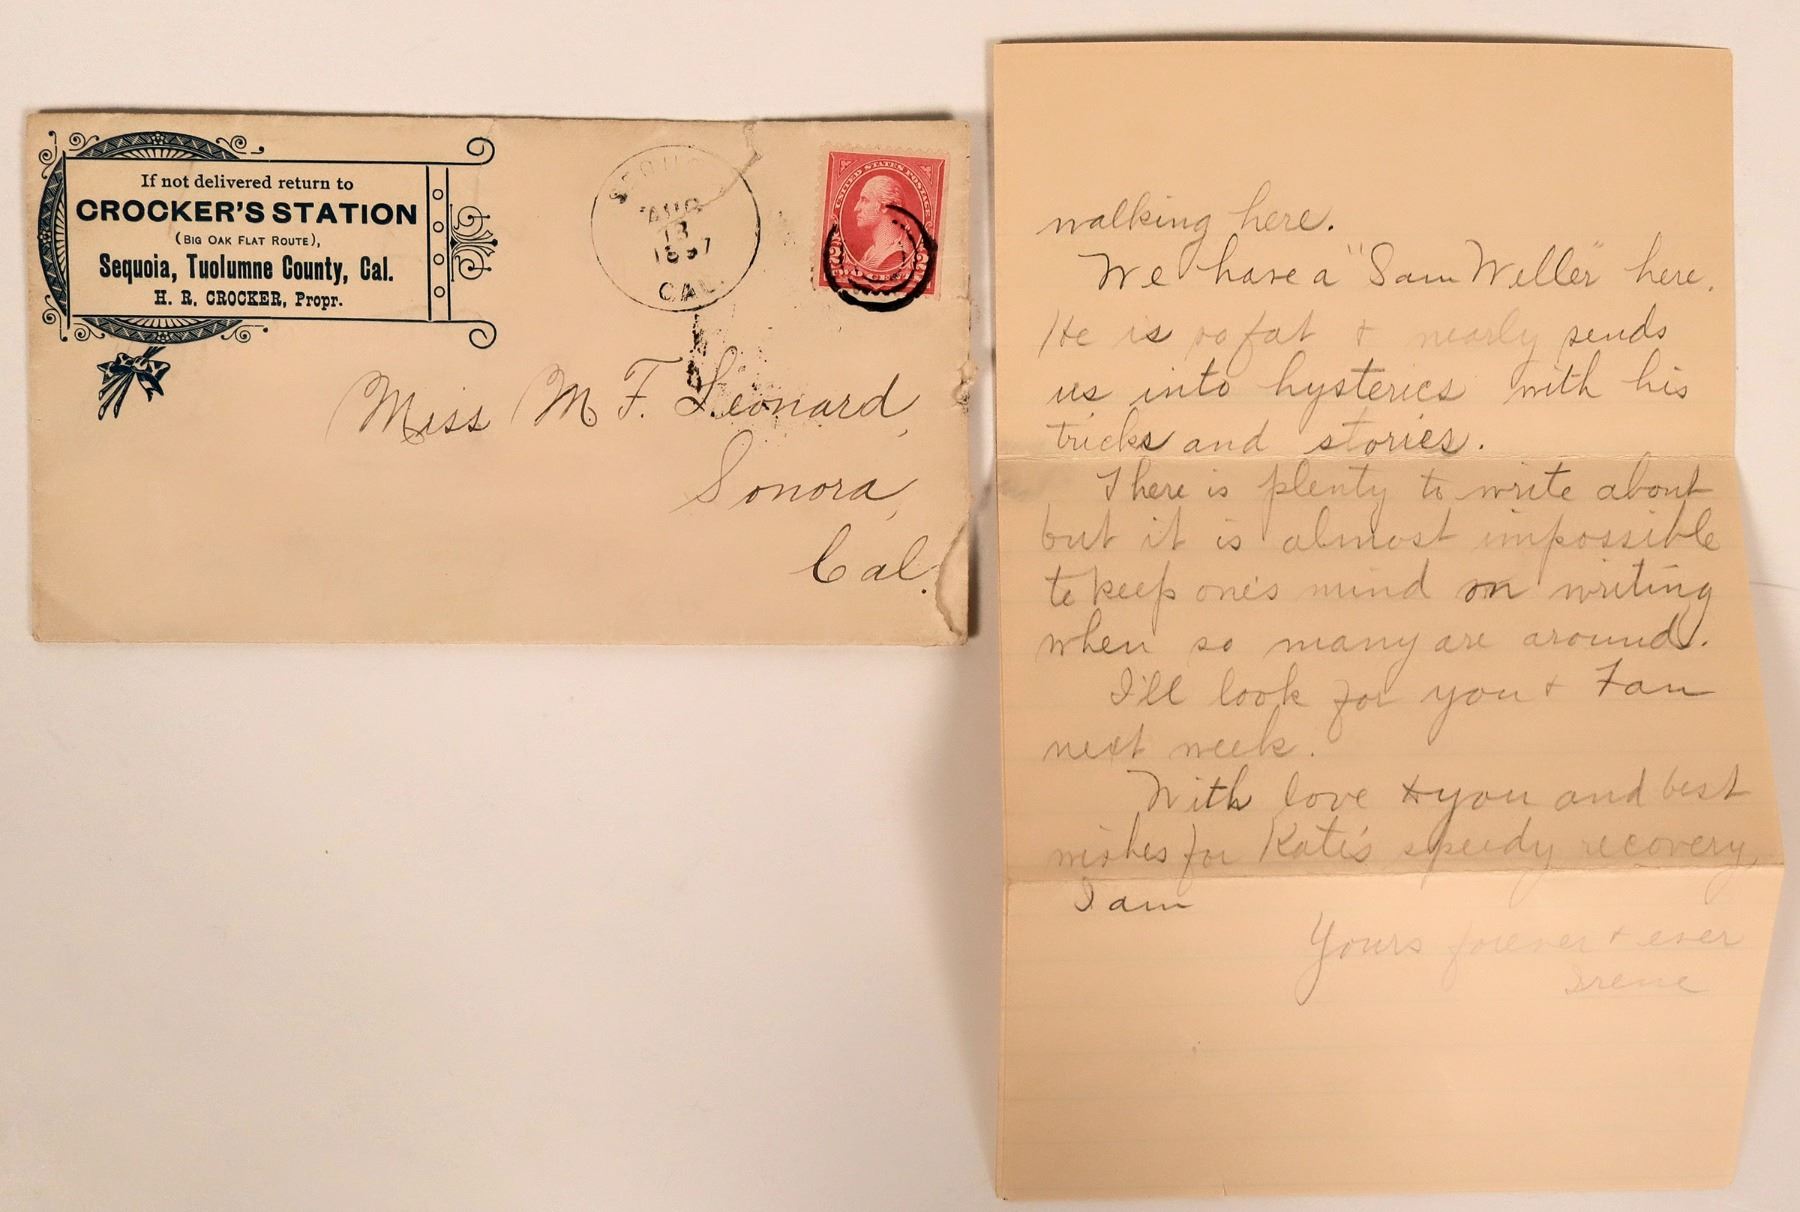 If not delivered return to
CROCKER'S STATION
(BIG OAK FLAT ROUTE),
Sequoia, Tuolumne County, Cal.
H. R. CROCKER, Propr.
AUG
13
1897
CAL.
UNITED STATES POSTAGE
Miss M F. Leonard,
Sonora,
Cal.
walking here.
We have a "Sam Weller" here.
He is so fat & nearly sends
us into hysterics with his
tricks and stories.
There is plenty to write about
but it is almost impossible
to keep one's mind on writing
when so many are around.
I'll look for you & Fan
next week.
With love to you and best
wishes for Kate's speedy recovery
I am
Yours forever & ever
Irene